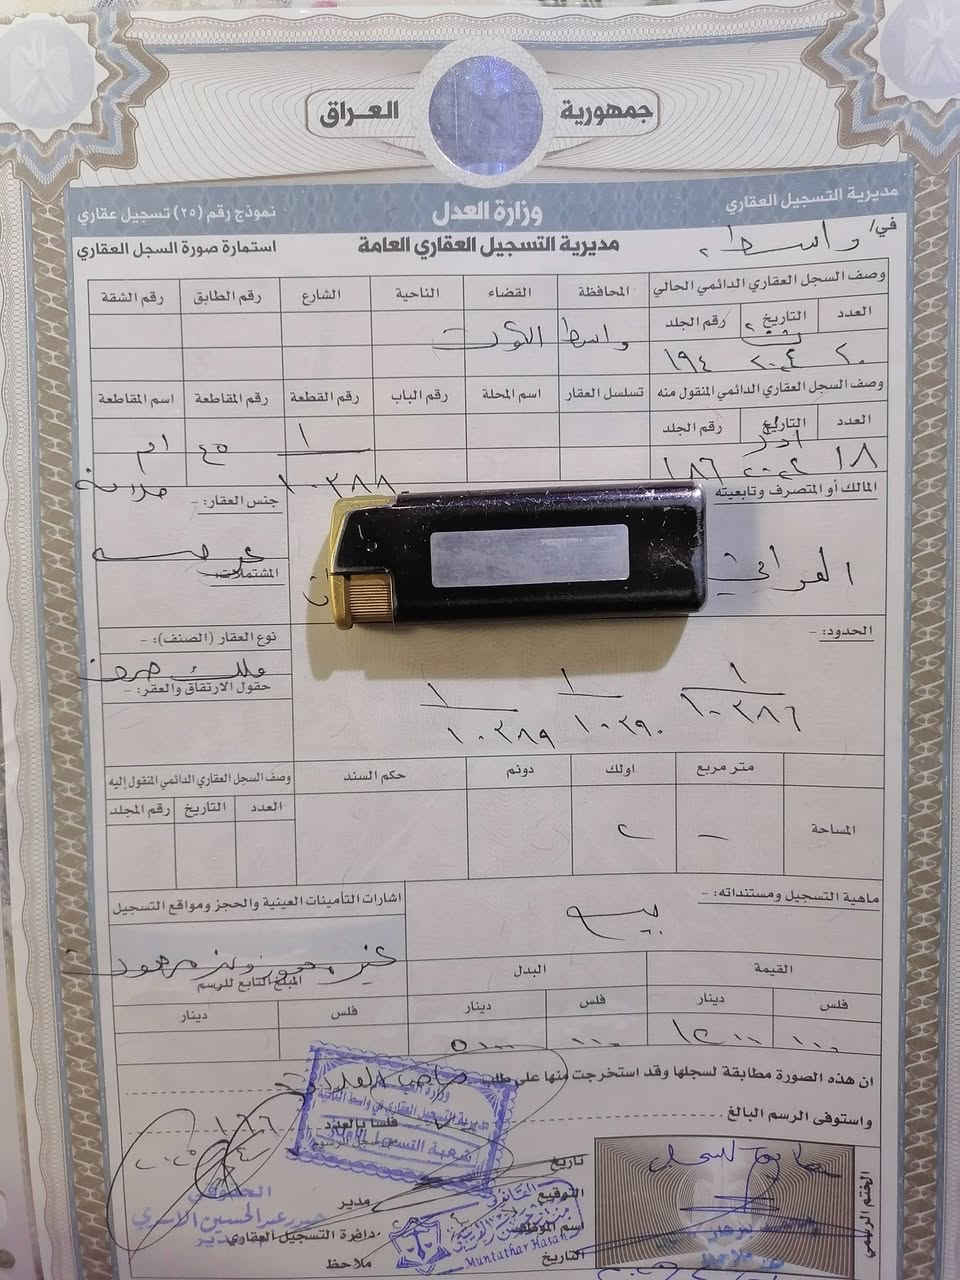 جمهورية العـراق
مديرية التسجيل العقاري
وزارة العدل
نموذج رقم (٢٥) تسجيل عقاري
في/ واسط ٢
مديرية التسجيل العقاري العامة
استمارة صورة السجل العقاري
وصف السجل العقاري الدائمي الحالي
المحافظة القضاء الناحية الشارع رقم الطابق رقم الشقة
العدد التاريخ رقم الجلد
واسط الكوت
٢٠ ١٩٤
وصف السجل العقاري الدائمي المنقول منه
تسلسل العقار اسم المحلة رقم الباب رقم القطعة رقم المقاطعة اسم المقاطعة
العدد التاريخ رقم الجلد
١ ٤٥ ام
١٨ ١٨٦
١٠٣٨٨
المالك أو المتصرف وتابعيته
جنس العقار: -
عرصه
المشتملات:
الحدود: -
نوع العقار (الصنف): -
ملك صرف
حقوق الارتفاق والعقر: -
١ ١ ١
١٠٣٨٦ ١٠٣٩٠ ١٠٣٨٩
متر مربع اولك دونم حكم السند
وصف السجل العقاري الدائمي المنقول إليه
العدد التاريخ رقم المجلد
المساحة
- ٢
ماهية التسجيل ومستنداته: -
اشارات التأمينات العينية والحجز ومواقع التسجيل
بيع
غير محجوز وغير مرهون
القيمة البدل
المبلغ التابع للرسم
فلس دينار فلس دينار فلس دينار
ان هذه الصورة مطابقة لسجلها وقد استخرجت منها على طلب
واستوفى الرسم البالغ
فلسا بالعدد
وزارة العدل
مديرية التسجيل العقاري في واسط الثانية
تاريخ
التوقيع
اسم الموظف
التاريخ
مدير
دائرة التسجيل العقاري
ملاحظ
الختم الرسمي
الحقوقي
حيدر عبدالحسين الاسدي
مدير
Muntathar Hasan